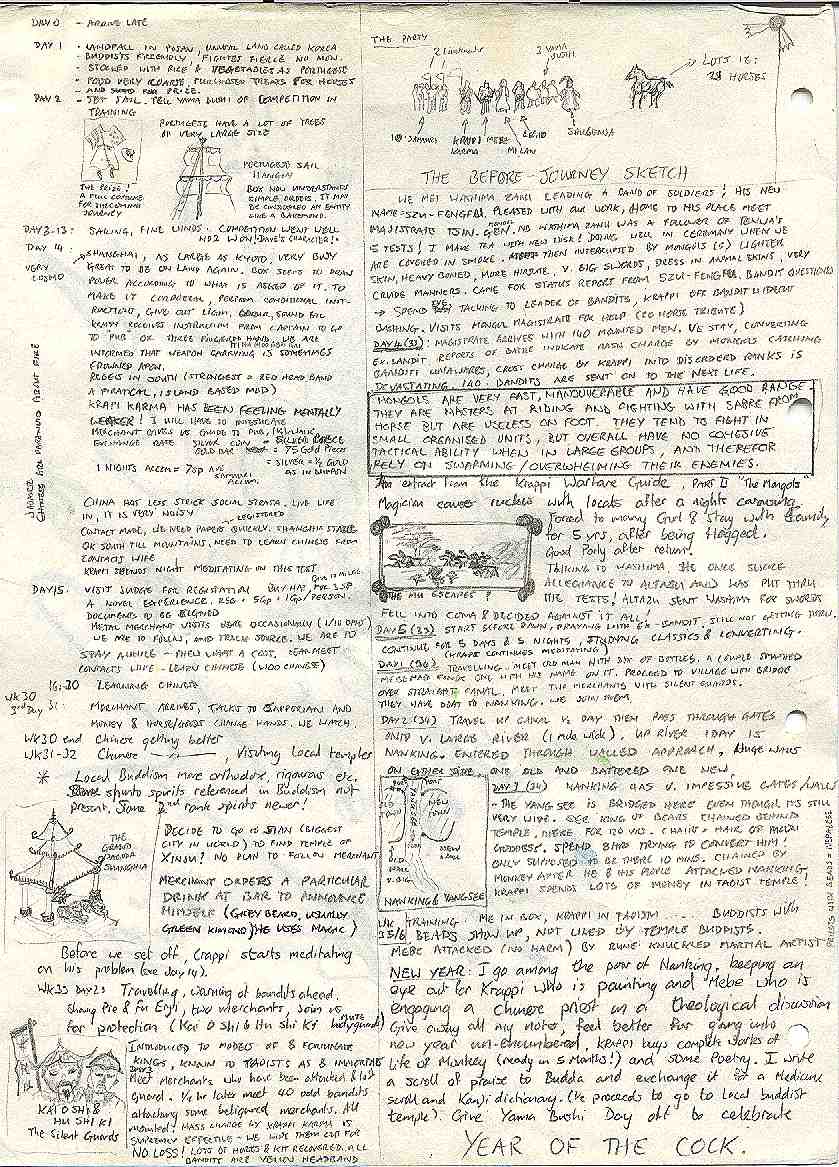 DAY 0 - ARRIVE LATE
DAY 1 - LANDFALL IN PUSAN, UNUSUAL LAND CALLED KOREA
- BUDDISTS FRIENDLY, FIGHTER FIERCE NO MEN.
- STOCKED WITH RICE & VEGETABLES AS PORTUGESE
- FOOD VERY COARSE, PURCHASED TREATS FOR HORSES
AND FOR PRIZE.
DAY 2 - SET SAIL. TELL YAMA BUSHI OF COMPETITION IN
TRAINING
PORTUGESE HAVE A LOT OF TREES
OF VERY LARGE SIZE
THE PRIZE!
A FULL COSTUME
FOR THE COMING
JOURNEY
PORTUGESE SAIL
BOX NOW UNDERSTANDS
SIMPLE ORDERS. IT MAY
BE CONSIDERED AN ENTITY
LIKE A BAKEMONO.
DAY 3-13: SAILING, FINE WINDS. COMPETITION WENT WELL
NO 2 WON (DAVE'S CHARACTER).
DAY 14: SHANGHAI, AS LARGE AS KYOTO, VERY BUSY
VERY GREAT TO BE ON LAND AGAIN. BOX SEEMS TO DRAW
POWER ACCORDING TO WHAT IS ASKED OF IT. TO
MAKE IT CORPOREAL, PERFORM CONDITIONAL INST-
RUCTIONS, GIVE OUT LIGHT, ODOUR, SOUND ETC
KRAPPI RECEIVES INSTRUCTION FROM CAPTAIN TO GO
TO "PUB" OF THREE FINGERED HAND. WE ARE
INFORMED THAT WEAPON CARRYING IS SOMETIMES
FROWNED APON.
REBELS IN SOUTH (STRONGEST = RED HEAD BAND
A PIRATICAL, ISLAND BASED MOB)
KRAPPI KARMA HAS BEEN FEELING MENTALLY
WEAKER! I WILL HAVE TO INVESTIGATE
MERCHANT GIVES US GUIDE TO PUB,
EXCHANGE RATE - SILVER COIN = SILVER PIECE
GOLD BAR = 75 GOLD PIECES
= SILVER = ½ GOLD
1 NIGHTS ACCOM = 7SP AVE AS IN NIHON
SAMURAI ACCOM.
CHINA HAS LESS STRICT SOCIAL STRATA. LIVE LIFE
IN, IT IS VERY NOISY
REGISTERED
CONTACT MADE, WE NEED PAPERS QUICKLY. SHANGHAI STABLE
OK SOUTH TILL MOUNTAINS, NEED TO LEARN CHINESE FROM
CONTACTS WIFE
KRAPPI SPENDS NIGHT MEDITATING ON THIS TEXT
DAY 15. VISIT JUDGE FOR REGISTRATION
A NOVEL EXPERIENCE. REG = 5GP + 1GP/PERSON.
DOCUMENTS TO BE SIGNED
METAL MERCHANT VISITS HERE OCCASIONALLY
WE ARE TO FOLLOW, AND TRACE SOURCE. WE ARE TO
STAY AWHILE - THEN WANT A COST, CAN MEET
CONTACTS WIFE - LEARN CHINESE (WOO CHINESE)
16-30 LEARNING CHINESE
WK 30
3rd Day 31: MERCHANT ARRIVES, TALKS TO EMPORIAN AND
MONEY & HORSE/GOODS CHANGE HANDS. WE WATCH.
WK 30 end Chinese getting better
WK31-32 Chinese, Visiting local temples
* Local Buddism more orthodox, rigourous etc.
Some spirits referenced in Buddism not
present. Some 2nd rank spirits newer!
THE
GRAND
PAGODA
SHANGHIA
DECIDE TO GO TO SIAN (BIGGEST
CITY IN WORLD) TO FIND TEMPLE OF
XINJU? NO PLAN TO FOLLOW MERCHANT
MERCHANT ORDERS A PARTICULAR
DRINK AT BAR TO ANNOUNCE
HIMSELF (GREY BEARD, USUALLY
GREEN KIMONO) HE USES MAGIC)
Before we set off, Crappi starts meditating
on his problem (see day 14).
WK33 DAY 2: Travelling, warning of bandits ahead.
Shang Pie & Fu Enji, two merchants, join us
for protection (Kai O Shi & Hu shi Ki MUTE bodyguards)
KAI O SHI &
HU SHI KI
The Silent Guards
INTRODUCED TO MODELS OF 8 FORTUNATE
KINGS, KNOWN TO TAOISTS AS 8 IMMORTALS
DAY 3
Meet Merchants who have been attacked & lost
guard. We hr later meet 40 odd bandits
attacking some beliguered merchants. All
mounted. MASS CHARGE BY KRAPPI KARMA IS
SUPREMELY EFFECTIVE - WE WIPE THEM OUT FOR
NO LOSS! LOTS OF HORSES & KIT RECOVERED. ALL
BANDITS ARE YELLOW HEADBAND
THE PARTY
3 YAMA
BUSHI
LOTS IE:
28 HORSES
10 SAMURAI
KRAPPI
KARMA
MEBE
MILAN
SHUGENJA
THE BEFORE-JOURNEY SKETCH
WE MET WASHIMA ZANH LEADING A BAND OF SOLDIERS; HIS NEW
NAME = SZU-FENGFEI. PLEASED WITH OUR WORK, HOME TO HIS PLACE MEET
MAGISTRATE TSIN-GEN. NO WASHIMA ZANH WAS A FOLLOWER OF TENWA'S
5 TESTS! I MAKE TEA WITH NEW WHISK! DOING WELL IN CEREMONY WHEN WE
ARE COVERED IN SMOKE. THEN INTERRUPTED BY MONGOLS (5) LIGHTER
SKIN, HEAVY BONED, MORE HIRSUTE, V. BIG SWORDS, DRESS IN ANIMAL SKINS, VERY
CRUDE MANNERS. CAME FOR STATUS REPORT FROM SZU-FENGFEI. BANDIT QUESTIONED
→ SPEND EVE TALKING TO LEADER OF BANDITS, KRAPPI OFF BANDIT HIDEOUT
BUSHING. VISITS MONGOL MAGISTRATE FOR HELP (20 HORSE TRIBUTE)
DAY 4 (33): MAGISTRATE ARRIVES WITH 140 MOUNTED MEN. WE STAY, CONVERTING
EX-BANDIT. REPORTS OF BATTLE INDICATE MASS CHARGE BY MONGOLS CATCHING
BANDITS UNAWARES, CRUST CHARGE BY KRAPPI INTO DISORDERED RANKS IS
DEVASTATING. 140 BANDITS ARE SENT ON TO THE NEXT LIFE.
MONGOLS ARE VERY FAST, MANOUVERABLE AND HAVE GOOD RANGE.
THEY ARE MASTERS AT RIDING AND FIGHTING WITH SABRE FROM
HORSE BUT ARE USELESS ON FOOT. THEY TEND TO FIGHT IN
SMALL ORGANISED UNITS, BUT OVERALL HAVE NO COHESIVE
TACTICAL ABILITY WHEN IN LARGE GROUPS, AND THEREFOR
RELY ON SWARMING/OVERWHELMING THEIR ENEMIES.
An extract from the Krappi Warfare Guide, PART II "The Mongols"
Magician causes ruckus with locals after a nights carousing.
Forced to marry Girl & Stay with family
for 5 yrs, after being flogged.
Good Party after return.
TALKING TO WASHIMA, HE ONCE SWORE
ALLEGIANCE TO ALTAZU AND WAS PUT THRU
THE TESTS! ALTAZU SENT WASHIMA FOR SWORDS
THE MU ESCAPES?
FELL INTO COMA & DECIDED AGAINST IT ALL!
DAY 5 (33) START BEFORE DAWN, PRAYING WITH EX-BANDIT, STILL NOT GETTING THRU.
CONTINUE FOR 5 DAYS & 5 NIGHTS STUDYING CLASSICS & CONVERTING.
(KRAPPI CONTINUES MEDITATING)
DAY 1 (34) TRAVELLING. MEET OLD MAN WITH BAG OF BOTTLES. A COUPLE SMASHED
MEBE MAD RANGE ONE WITH HIS NAME ON IT. PROCEED TO VILLAGE WITH BRIDGE
OVER STRAIGHT CANAL. MEET TWO MERCHANTS WITH SILENT GUARDS.
THEY HAVE BOAT TO NANKING. WE JOIN THEM
DAY 2 (34) TRAVEL UP CANAL ½ DAY THEN PASS THROUGH GATES
ONTO V. LARGE RIVER (1 mile wide). UP RIVER 1 DAY IS
NANKING. ENTERED THROUGH WALLED APPROACH, HUGE WALLS
ON EITHER SIDE. ONE OLD AND BATTERED ONE NEW.
OLD TOWN
PORT
YANGSEE
NEW
TOWN
OLD
WALL
V. BIG
NEW
WALL
NANKING & YANGSEE
DAY 3 (34) NANKING HAS V. IMPRESSIVE GATES/WALLS
- THE YANGSEE IS BRIDGED HERE EVEN THOUGH ITS STILL
VERY WIDE. SEE KING OF BEARS CHAINED BEHIND
TEMPLE. HERE FOR 120 YRS. CHAINS = HAIR OF
GODDESS. SPEND 8 HRS TRYING TO CONVERT HIM!
ONLY SUPPOSED TO BE THERE 10 MINS. CHAINED BY
MONKEY AFTER HE & HIS PEOPLE ATTACKED NANKING.
KRAPPI SPENDS LOTS OF MONEY IN TAOIST TEMPLE!
PRIESTS WITH BEADS = HEADLESS
WK
35/6 TRAINING: ME IN BOX, KRAPPI IN TAOISM .... BUDDISTS WITH
BEADS SHOW UP, NOT LIKED BY TEMPLE BUDDISTS.
MEBE ATTACKED (NO HARM) BY RUNE KNUCKLED MARTIAL ARTIST
NEW YEAR: I go among the poor of Nanking, keeping an
eye out for Krappi who is painting and Mebe who is
engaging a chinese priest in a theological discussion
Give away all my notes, feel better for going into
new year un-encumbered, KRAPPI buys complete works of
Life of Monkey (ready in 5 months!) and some Poetry. I write
a scroll of praise to Budda and exchange it for a Medicine
scroll and Kanji dictionary. (He proceeds to go to local buddist
temple). Give Yama Bushi Day off to celebrate
YEAR OF THE COCK.